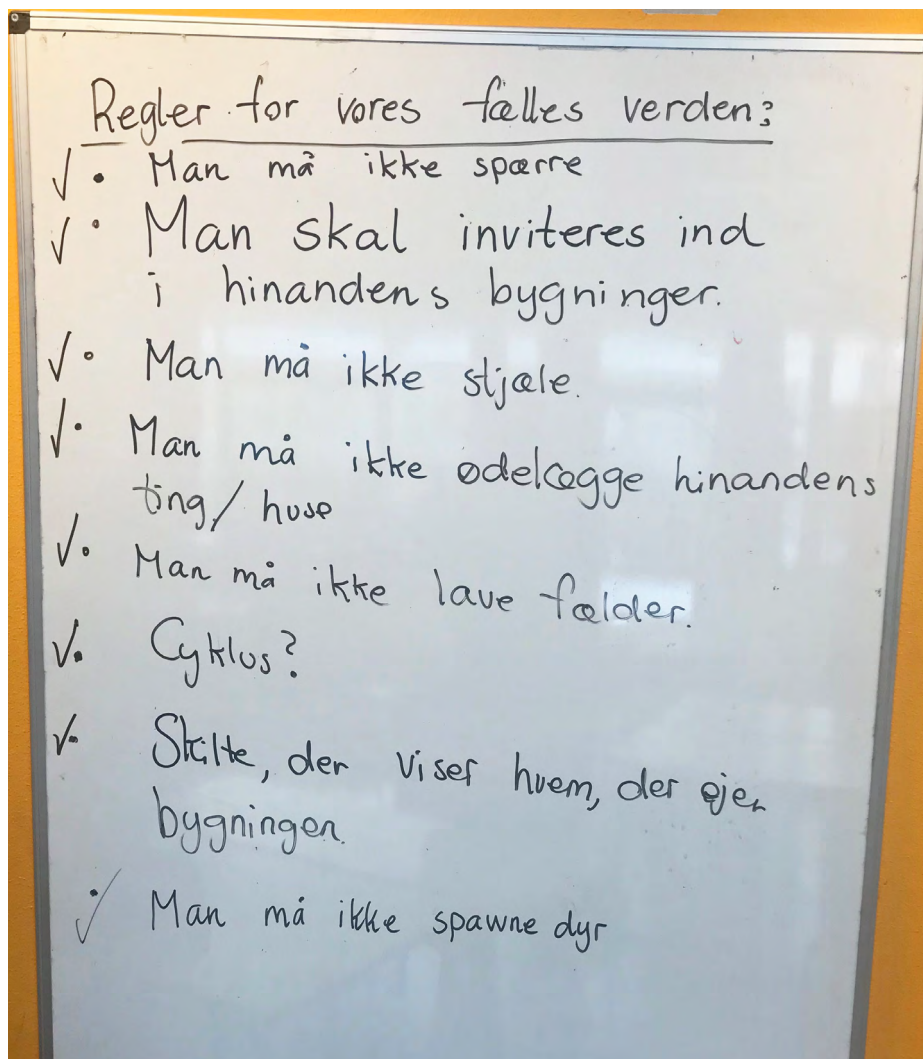 Regler for vores fælles verden:
✓ • Man må ikke spærre
✓ • Man skal inviteres ind
i hinandens bygninger.
✓ • Man må ikke stjæle.
✓ • Man må ikke ødelægge hinandens
ting/huse
✓ • Man må ikke lave fælder.
✓ • Cyklus?
✓ • Skilte, der viser hvem, der ejer
bygningen.
✓ • Man må ikke spawne dyr